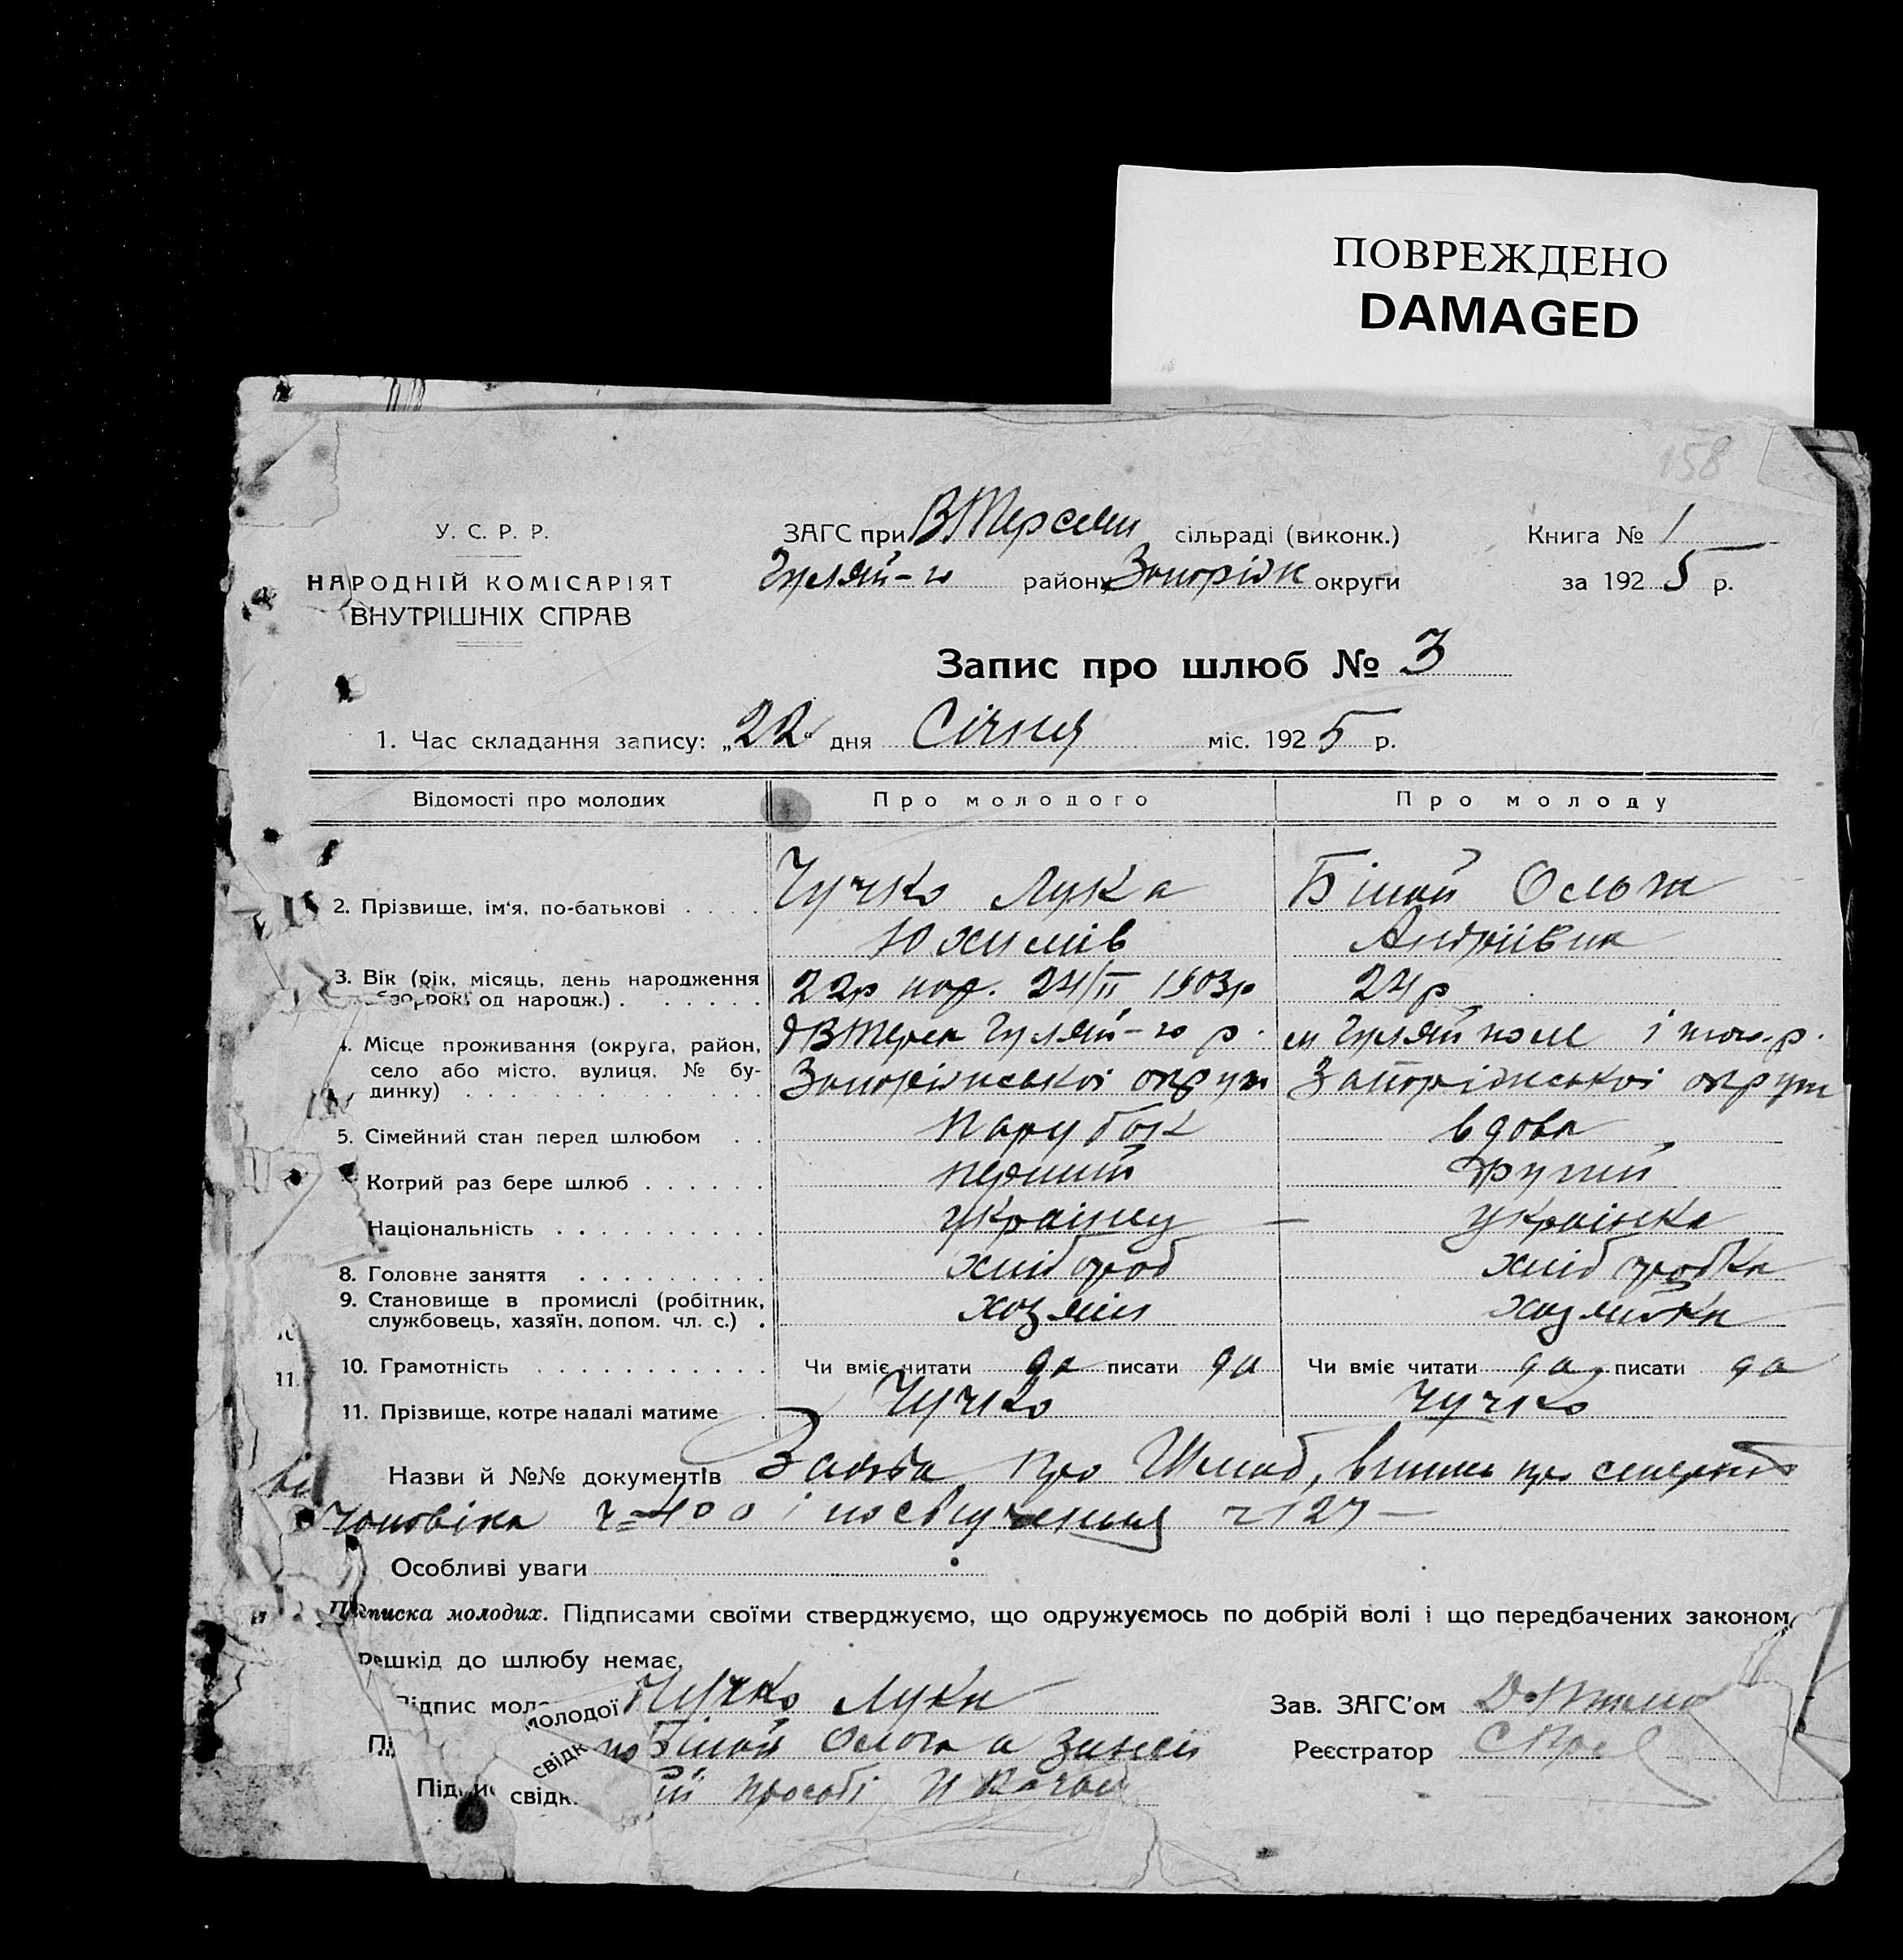 ПОВРЕЖДЕНО
DAMAGED
158
У. С. Р. Р.
НАРОДНІЙ КОМІСАРІЯТ
ВНУТРІШНІХ СПРАВ
ЗАГС при ВТерсян сільраді (виконк.)
Гуляй-го району Запоріж округи
Книга № 1
за 1925 р.
Запис про шлюб № 3
1. Час складання запису: „22“ дня Січня міс. 1925 р.
Відомості про молодих Про молодого Про молоду
2. Прізвище, ім‘я, по-батькові Чучко Лука Білай Ольга
Юхимів Андріівна
3. Вік (рік, місяць, день народження 22р нар. 24/II 1903р 24р
од народж.)
4. Місце проживання (округа, район, ВТерся Гуляй-го р. м Гуляй поле і того-р.
село або місто, вулиця, № бу- Запоріжськоі округи Запоріжськоі округи
динку)
5. Сімейний стан перед шлюбом парубок вдова
Котрий раз бере шлюб перший другий
Національність украінец украінка
8. Головне заняття хлібороб хліборобка
9. Становище в промислі (робітник, хозяін хозяйка
службовець, хазяїн, допом. чл. с.)
10. Грамотність Чи вміє читати да писати да Чи вміє читати да писати да
11.
11. Прізвище, котре надалі матиме Чучко Чучко
Назви й №№ документів Заява про Шлюб, випись про смерть
чоловіка ч=400 і посвідчення ч 127 —
Особливі уваги
Підписка молодих. Підписами своїми стверджуємо, що одружуємось по добрій волі і що передбачених законом
решкід до шлюбу немає.
Підпис мол молодої Чучко Лука
Зав. ЗАГС’ом
свідк Білай Ольга а за неі
Реєстратор
Підпис свідк. ій прособі